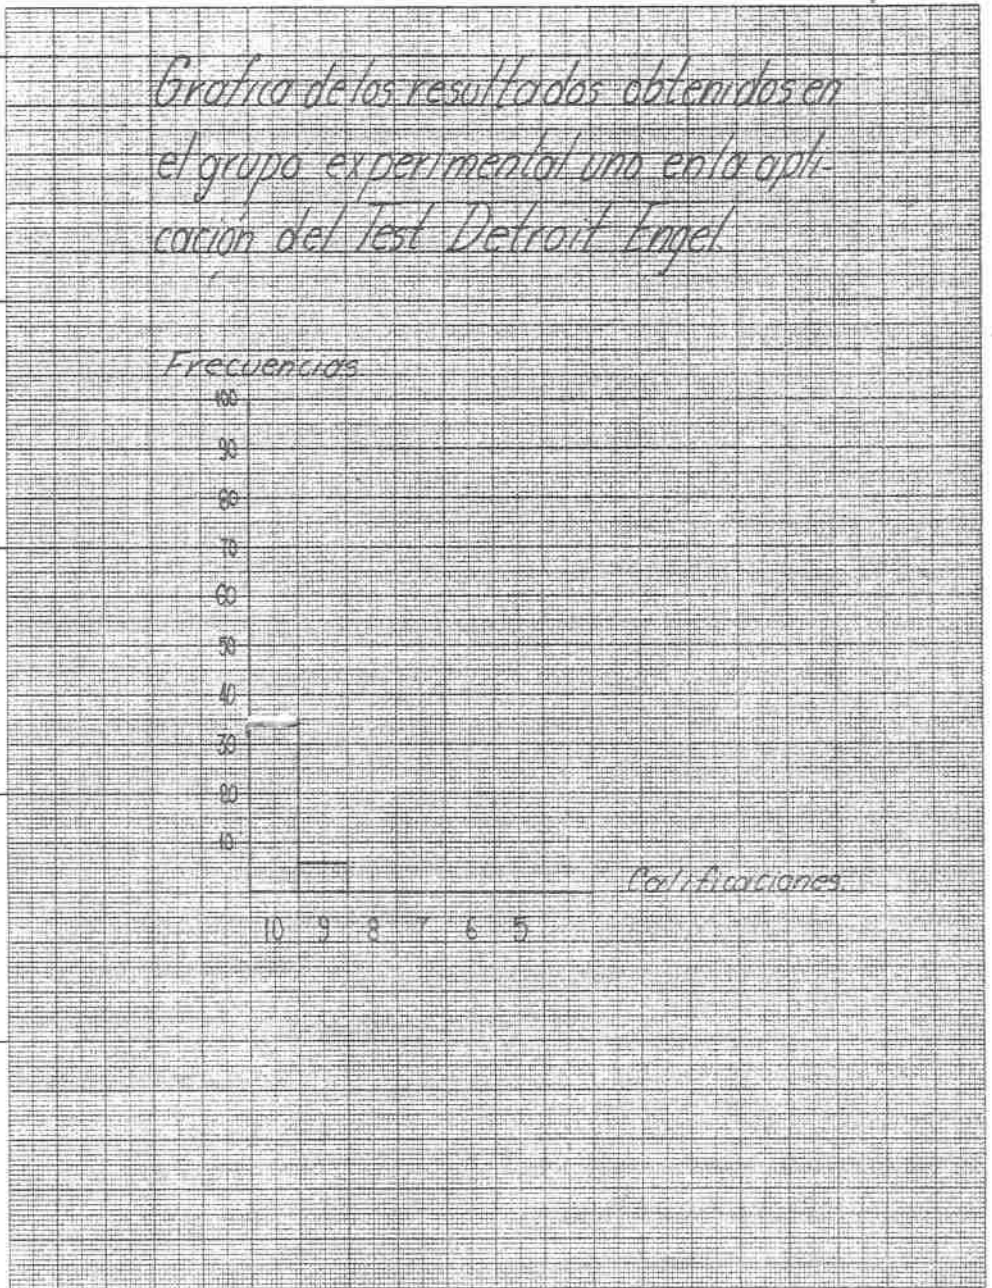 Grafica de los resultados obtenidos en
el grupo experimental uno en la apli-
cación del Test Detroit Engel.
Frecuencias
100
90
80
70
60
50
40
30
20
10
Calificaciones.
10 9 8 7 6 5